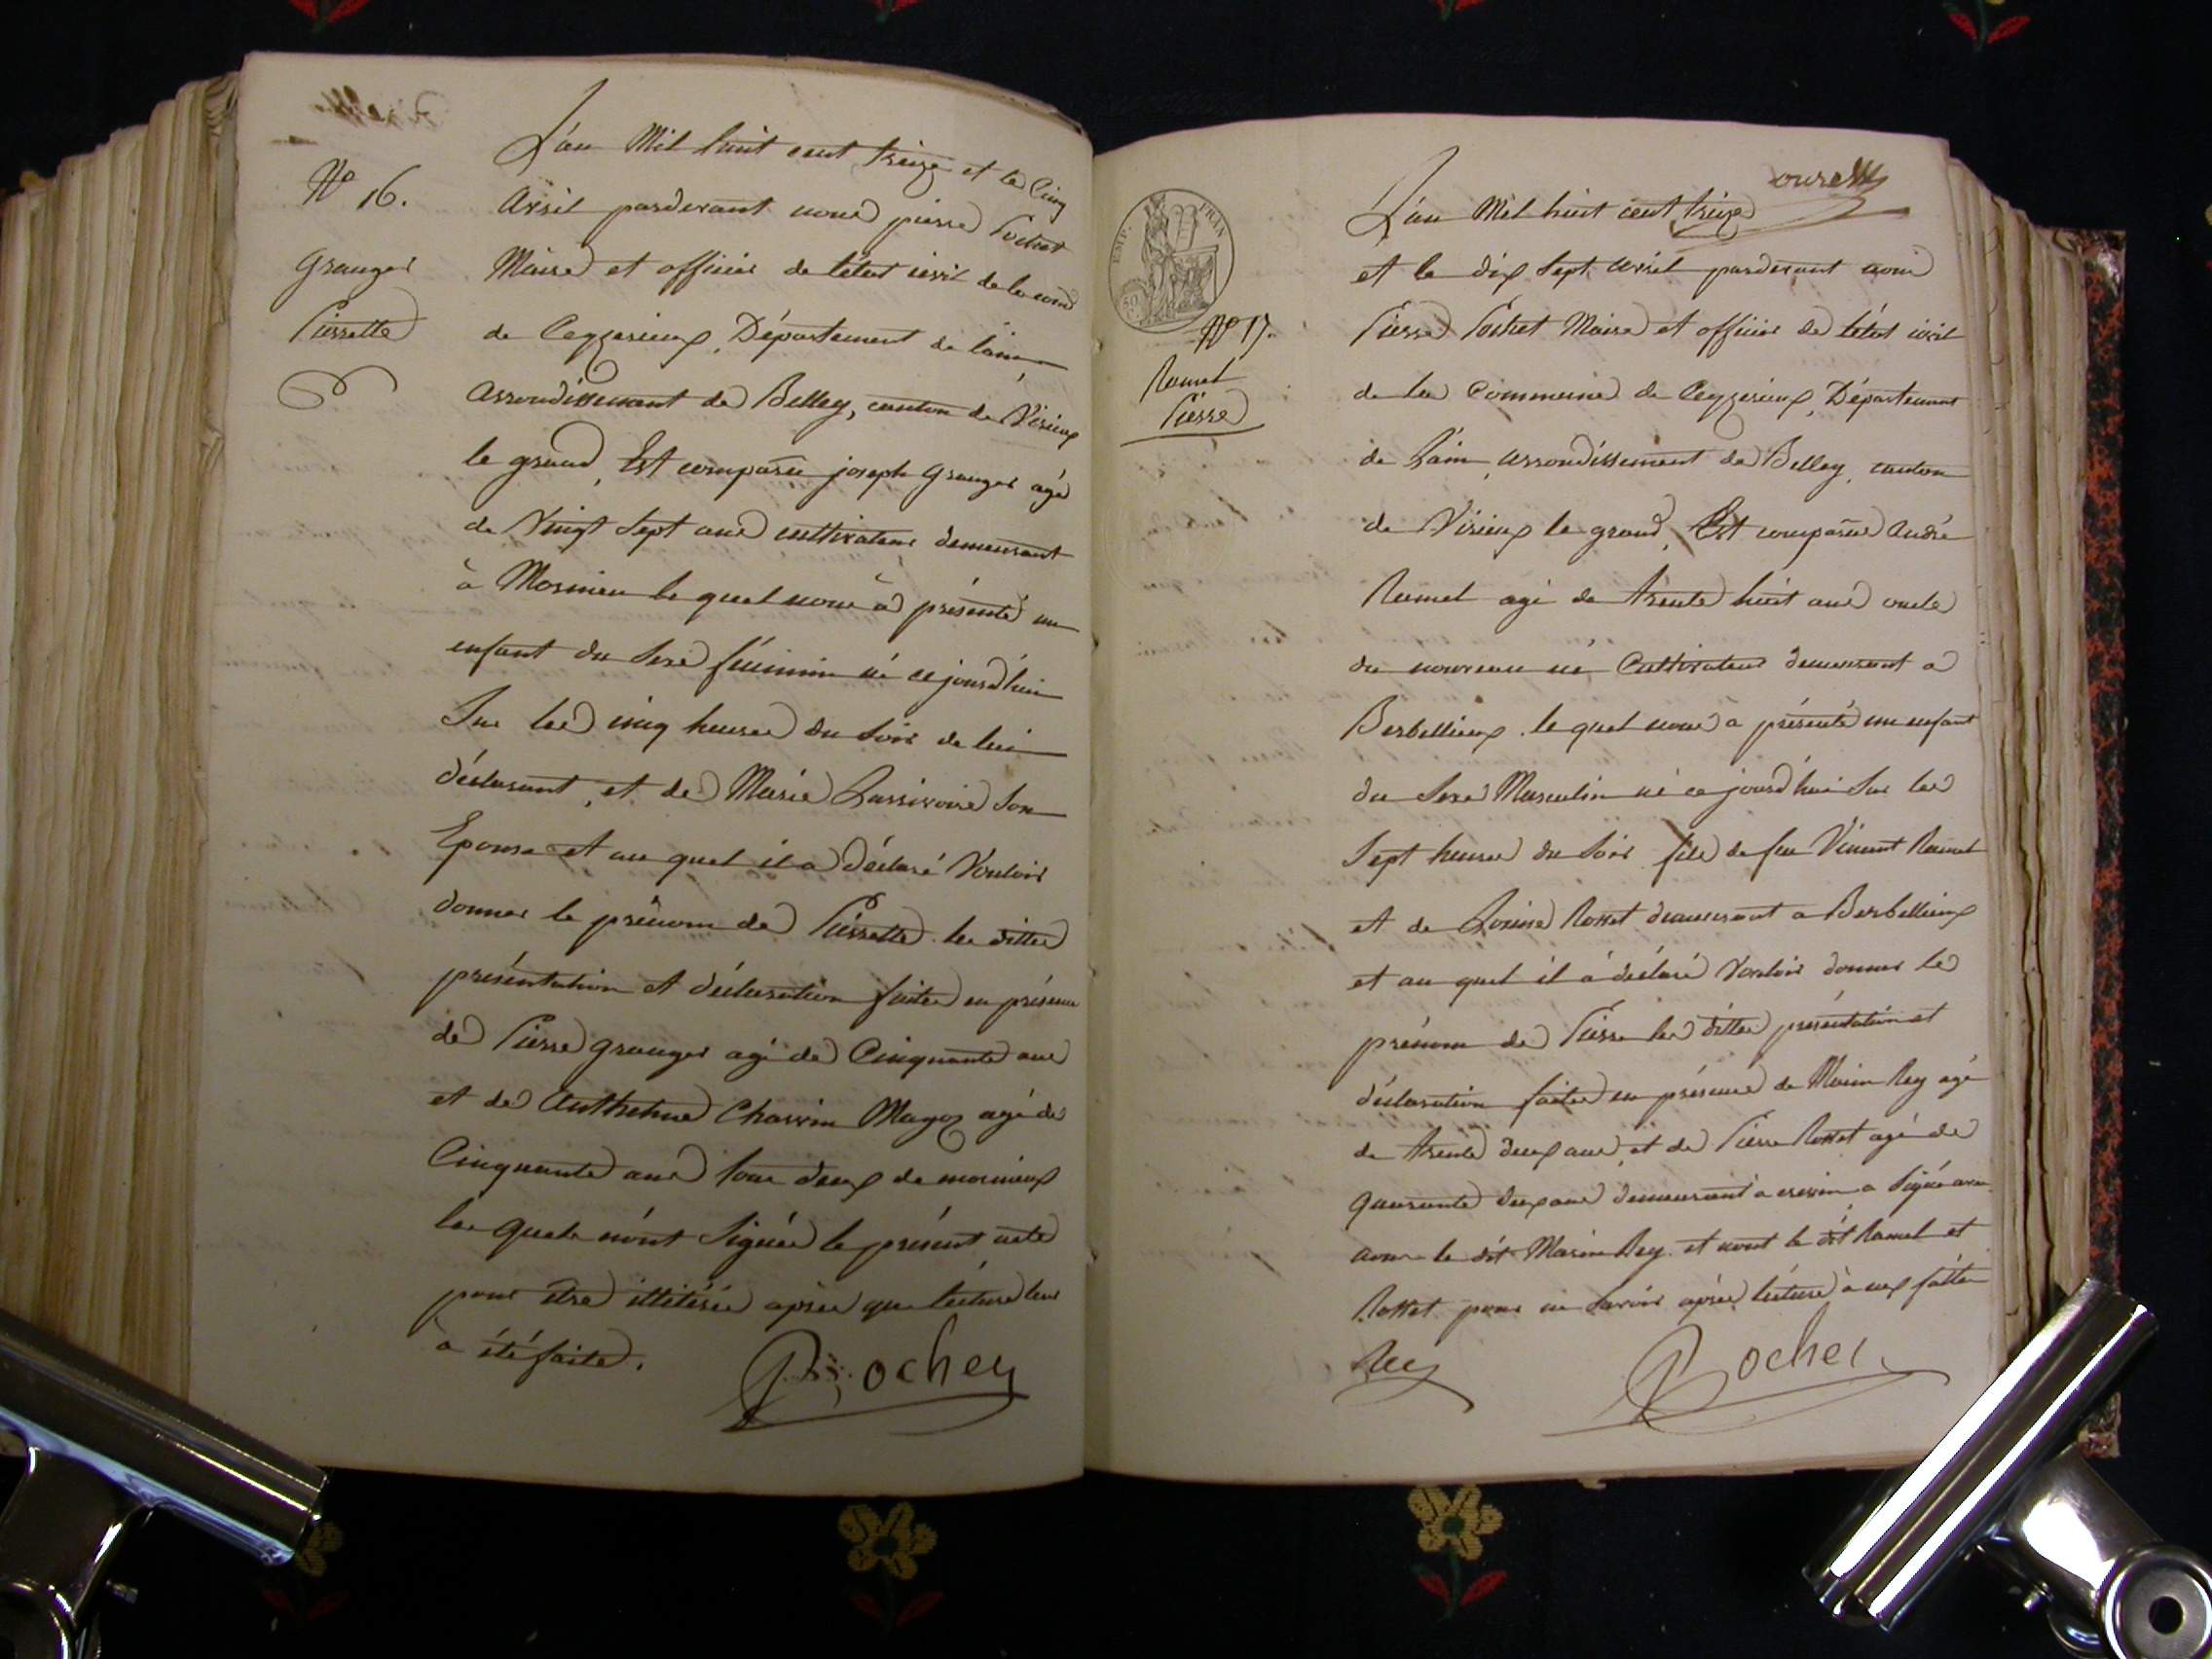 N° 16.
Granger
Pierrette
L'an Mil huit cent treize et le Cinq
avril pardevant nous pierre Pochet
Maire et officier de l'état civil de la com
de Ceyzerieux, Département de l'ain
arrondissement de Belley, canton de Virieux
le grand, Est comparu joseph Granger agé
de Vingt Sept ans cultivateur demeurant
à Morinieu le quel nous à présenté un
enfant du Sexe féminin né ce jourd'hui
Sur les cinq heures du Soir de lui
déclarant, et de Marie Larrivoire Son
Epouse et au quel il a déclaré Vouloir
donner le prénom de Pierrette les dittes
présentation et déclaration faites en présence
de Pierre granger agé de Cinquante ans
et de Anthelme Charvin Magoz agé de
Cinquante ans tous deux de morinieux
les quels n'ont Signés le présent acte
pour être illitérés après que lecture leur
a été faite.
Pochey
onze
EMP. FRAN
N° 17.
Ramel
Pierre
L'an Mil huit cent treize
et le dix Sept avril pardevant nous
Pierre Pochet Maire et officier de l'état civil
de la Commune de Ceyzerieux, Département
de L'ain, arrondissement de Belley, canton
de Virieux le grand, Est comparu andré
Ramel agé de trente huit ans oncle
du nouveau né Cultivateur demeurant a
Berbellieux le quel nous a présenté un enfant
du Sexe Masculin né ce jourd'hui Sur les
Sept heures du Soir fils de feu Vincent Ramel
et de Louise Rosset demeurant a Berbellieux
et au quel il á déclaré Vouloir donner le
prénom de Pierre les dittes présentation et
déclaration faites en présence de Marin Rey agé
de trente deux ans, et de Pierre Rosset agé de
quarante deux ans demeurant a a Signé avec
nous le dit Marin Rey et n'ont le dit Ramel et
Rosset pour ne Savoir après lécture à eux faitte
Rey
Pochet